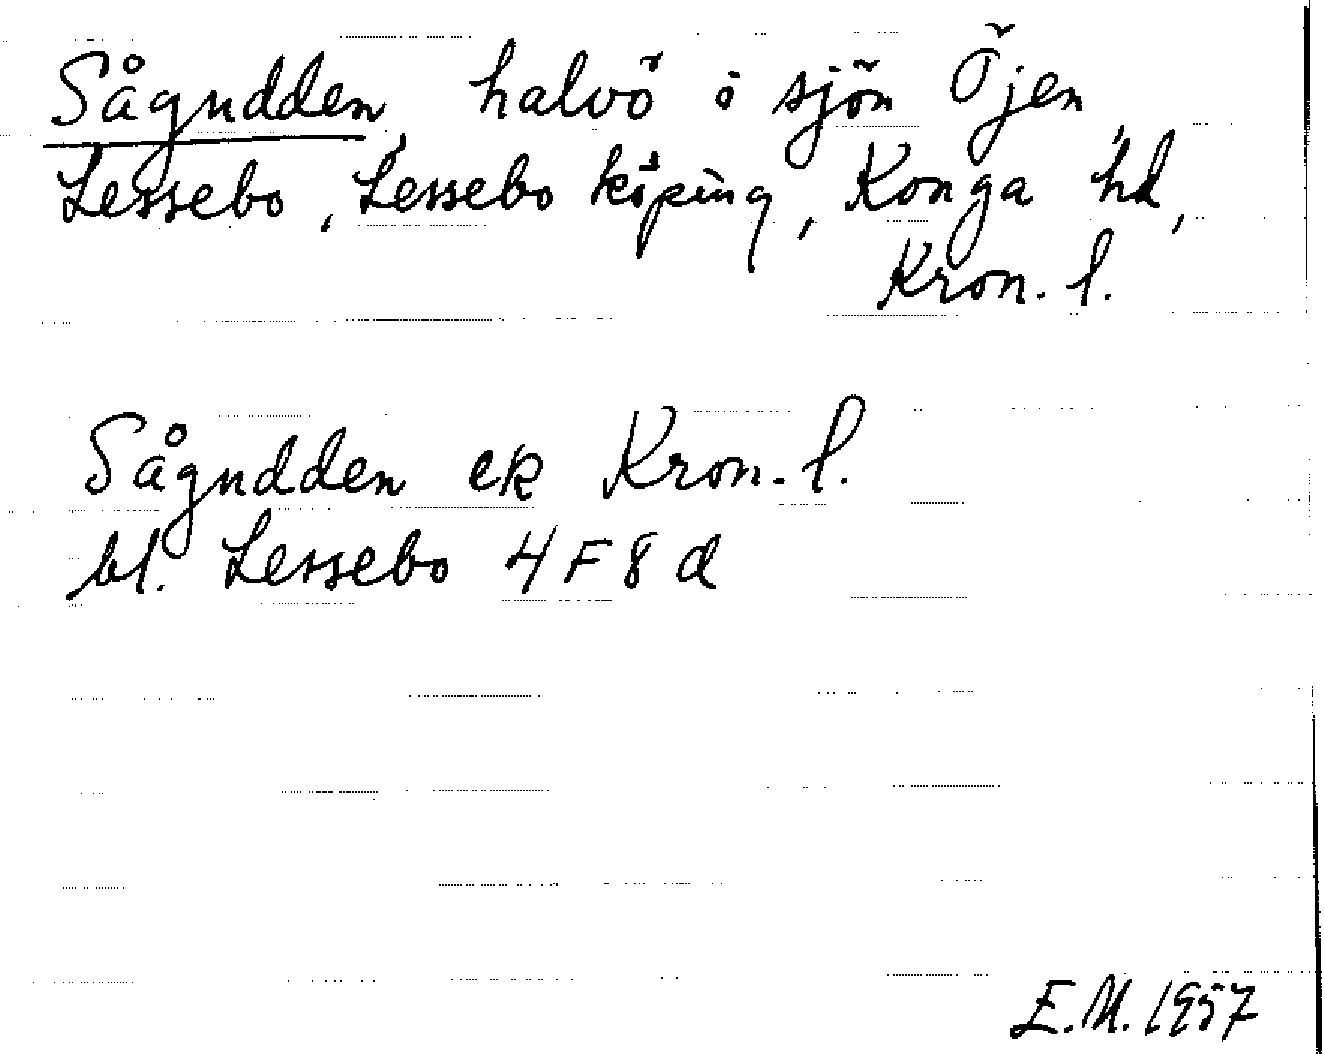 Sågudden, halvö i sjön Öjen,
Lessebo, Lessebo köping, Konga hd,
Kron. l.
Sågudden ek Kron. l.
bl. Lessebo 4F8d
E.M. 1957